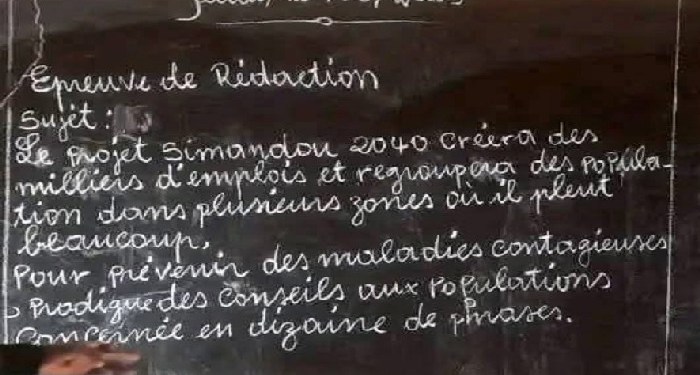 Epreuve de Rédaction
Sujet :
Le projet Simandou 2040 créera des
milliers d'emplois et regroupera des popula-
tion dans plusieurs zones où il pleut
beaucoup.
Pour prévenir des maladies contagieuses
, Prodigue des conseils aux populations
concernée en dizaine de phrases.